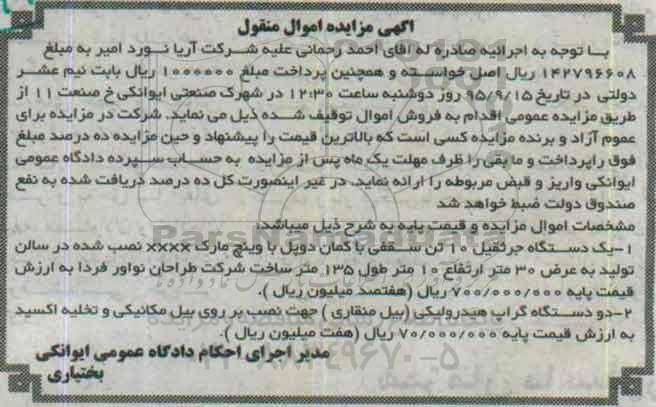 آگهی مزایده اموال منقول
بـا توجه به اجرائیه صادره له آقای احمد رحمانی علیه شـرکت آریا نـورد امیر به مبلغ
۱۴۲۷۹۶۶۰۸ ریال اصل خواسـته و همچنین پرداخت مبلغ ۱۰۰۰۰۰۰ ریال بابت نیم عشـر
دولتی در تاریخ ۹۵/۹/۱۵ روز دوشنبه ساعت ۱۲:۳۰ در شهرک صنعتی ایوانکی خ صنعت ۱۱ از
طریق مزایده عمومی اقدام به فروش اموال توقیف شـده ذیل می نماید. شرکت در مزایده برای
عموم آزاد و برنده مزایده کسی است که بالاترین قیمت را پیشنهاد و حین مزایده ده درصد مبلغ
فوق راپرداخت و ما بقی را ظرف مهلت یک ماه پس از مزایده به حساب سـپرده دادگاه عمومی
ایوانکی واریز و قبض مربوطه را ارائه نماید. در غیر اینصورت کل ده درصد دریافت شده به نفع
صندوق دولت ضبط خواهد شد
مشخصات اموال مزایده و قیمت پایه به شرح ذیل میباشد.
۱-یک دسـتگاه جرثقیل ۱۰ تن سـقفی با کمان دوپل با وینچ مارک xxxx نصب شده در سالن
تولید به عرض ۳۰ متر ارتفاع ۱۰ متر طول ۱۳۵ متر ساخت شرکت طراحان نوآور فردا به ارزش
قیمت پایه ۷۰۰/۰۰۰/۰۰۰ ریال (هفتصد میلیون ریال ).
۲-دو دسـتگاه گراپ هیدرولیکی (بیل منقاری ) جهت نصب بر روی بیل مکانیکی و تخلیه اکسید
به ارزش قیمت پایه ۷۰/۰۰۰/۰۰۰ ریال (هفت میلیون ریال ).
مدیر اجرای احکام دادگاه عمومی ایوانکی
بختیاری